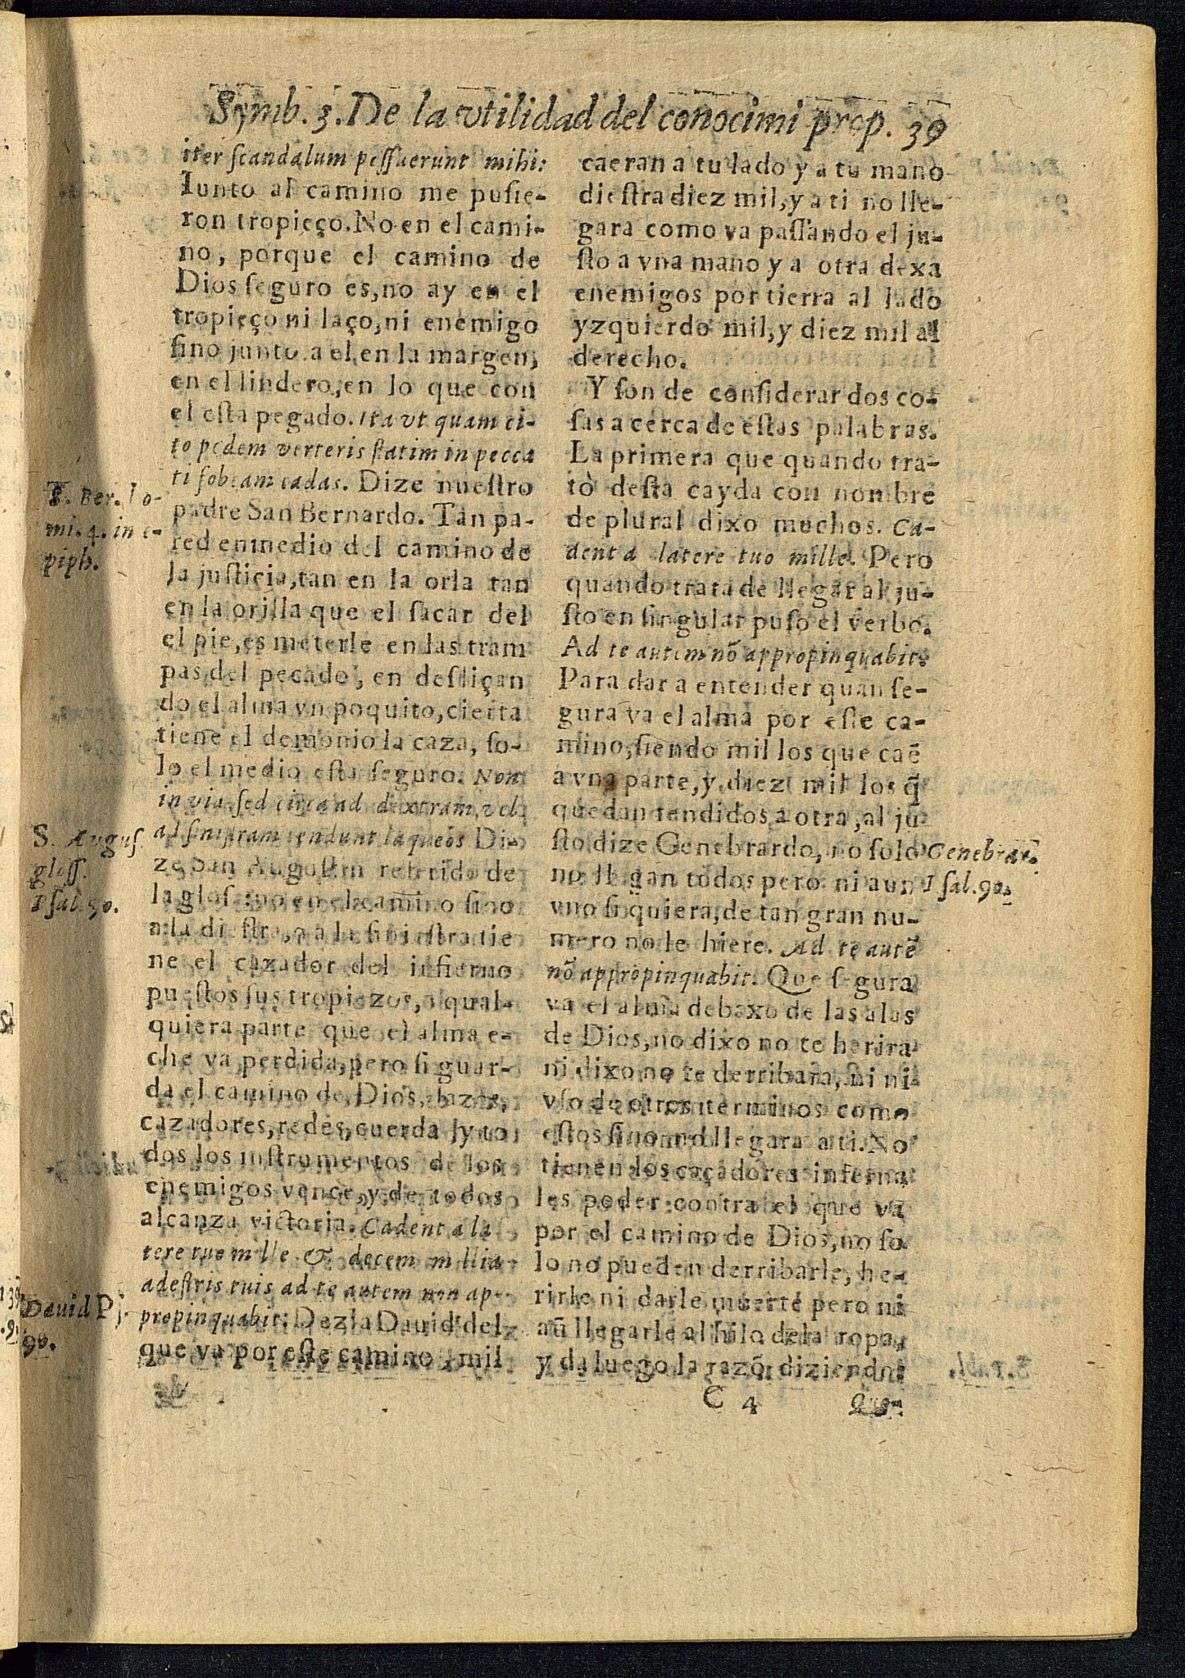 Symb. 3. De la vtilidad del conocimi prop. 39
iter scandalum possuerunt mihi:
Iunto al camino me pusie-
ron tropieço. No en el cami-
no, porque el camino de
Dios seguro es, no ay en el
tropieço ni laço, ni enemigo
sino junto a el, en la margen,
en el lindero, en lo que con
el esta pegado. Ita vt quam ci-
to pedem verteris statim in pecca
ti fobeam cadas. Dize nuestro
padre San Bernardo. Tan pa-
red enmedio del camino de
la justicia, tan en la orla tan
en la orilla que el sacar del
el pie, es meterle en las tram
pas del pecado, en desliçan
do el alma vn poquito, cierta
tiene el demonio la caza, so-
lo el medio esta seguro. Non
in via sed circa ad dextram, vel
ad sinistram tendunt laqueos Di-
ze San Augostin referido de
la glosa no en el camino sino
a la diestra, o a la siniestra tie
ne el cazador del infierno
puestos sus tropiezos, a qual-
quiera parte que el alma e-
che va perdida, pero si guar-
da el camino de Dios, lazos,
cazadores, redes, cuerdas y to
dos los instrumentos de los
enemigos vence, y de todos
alcanza victoria. Cadent a la
tere tuo mille & decem millia
adestris tuis ad te autem non ap-
propinquabit: Dezia Dauid del
que va por este camino, mil
S. Ber. Ho-
mi. 4. in e-
piph.
S. Augus
gloss.
Psal. 90.
Dauid Ps
90.
caeran a tu lado y a tu mano
diestra diez mil, y a ti no lle-
gara como va passando el ju-
sto a vna mano y a otra dexa
enemigos por tierra al lado
yzquierdo mil, y diez mil al
derecho.
Y son de considerar dos co-
sas a cerca de estas palabras.
La primera que quando tra-
to desta cayda con nombre
de plural dixo muchos. Ca-
dent a latere tuo mille. Pero
quando trata de llegar al ju-
sto en singular puso el verbo.
Ad te autem nõ appropinquabit.
Para dar a entender quan se-
gura va el alma por este ca-
mino, siendo mil los que caẽ
a vna parte, y diez mil los q̃
quedan tendidos a otra, al ju
sto dize Genebrardo, no solo
no llegan todos pero ni aun
vno siquiera, de tan gran nu-
mero no le hiere. Ad te autẽ
nõ appropinquabit. Que segura
va el alma debaxo de las alas
de Dios, no dixo no te herira
ni dixo no te derribara, ni ni
vso de otros terminos como
estos sino no llegara a ti. No
tienen los caçadores inferna
les poder contra el que va
por el camino de Dios, no so
lo no pueden derribarle, he-
rirle ni darle muerte pero ni
aũ llegarle al hilo de la ropa,
y da luego la razõ diziendo:
Genebrar.
Psal. 90.
C 4